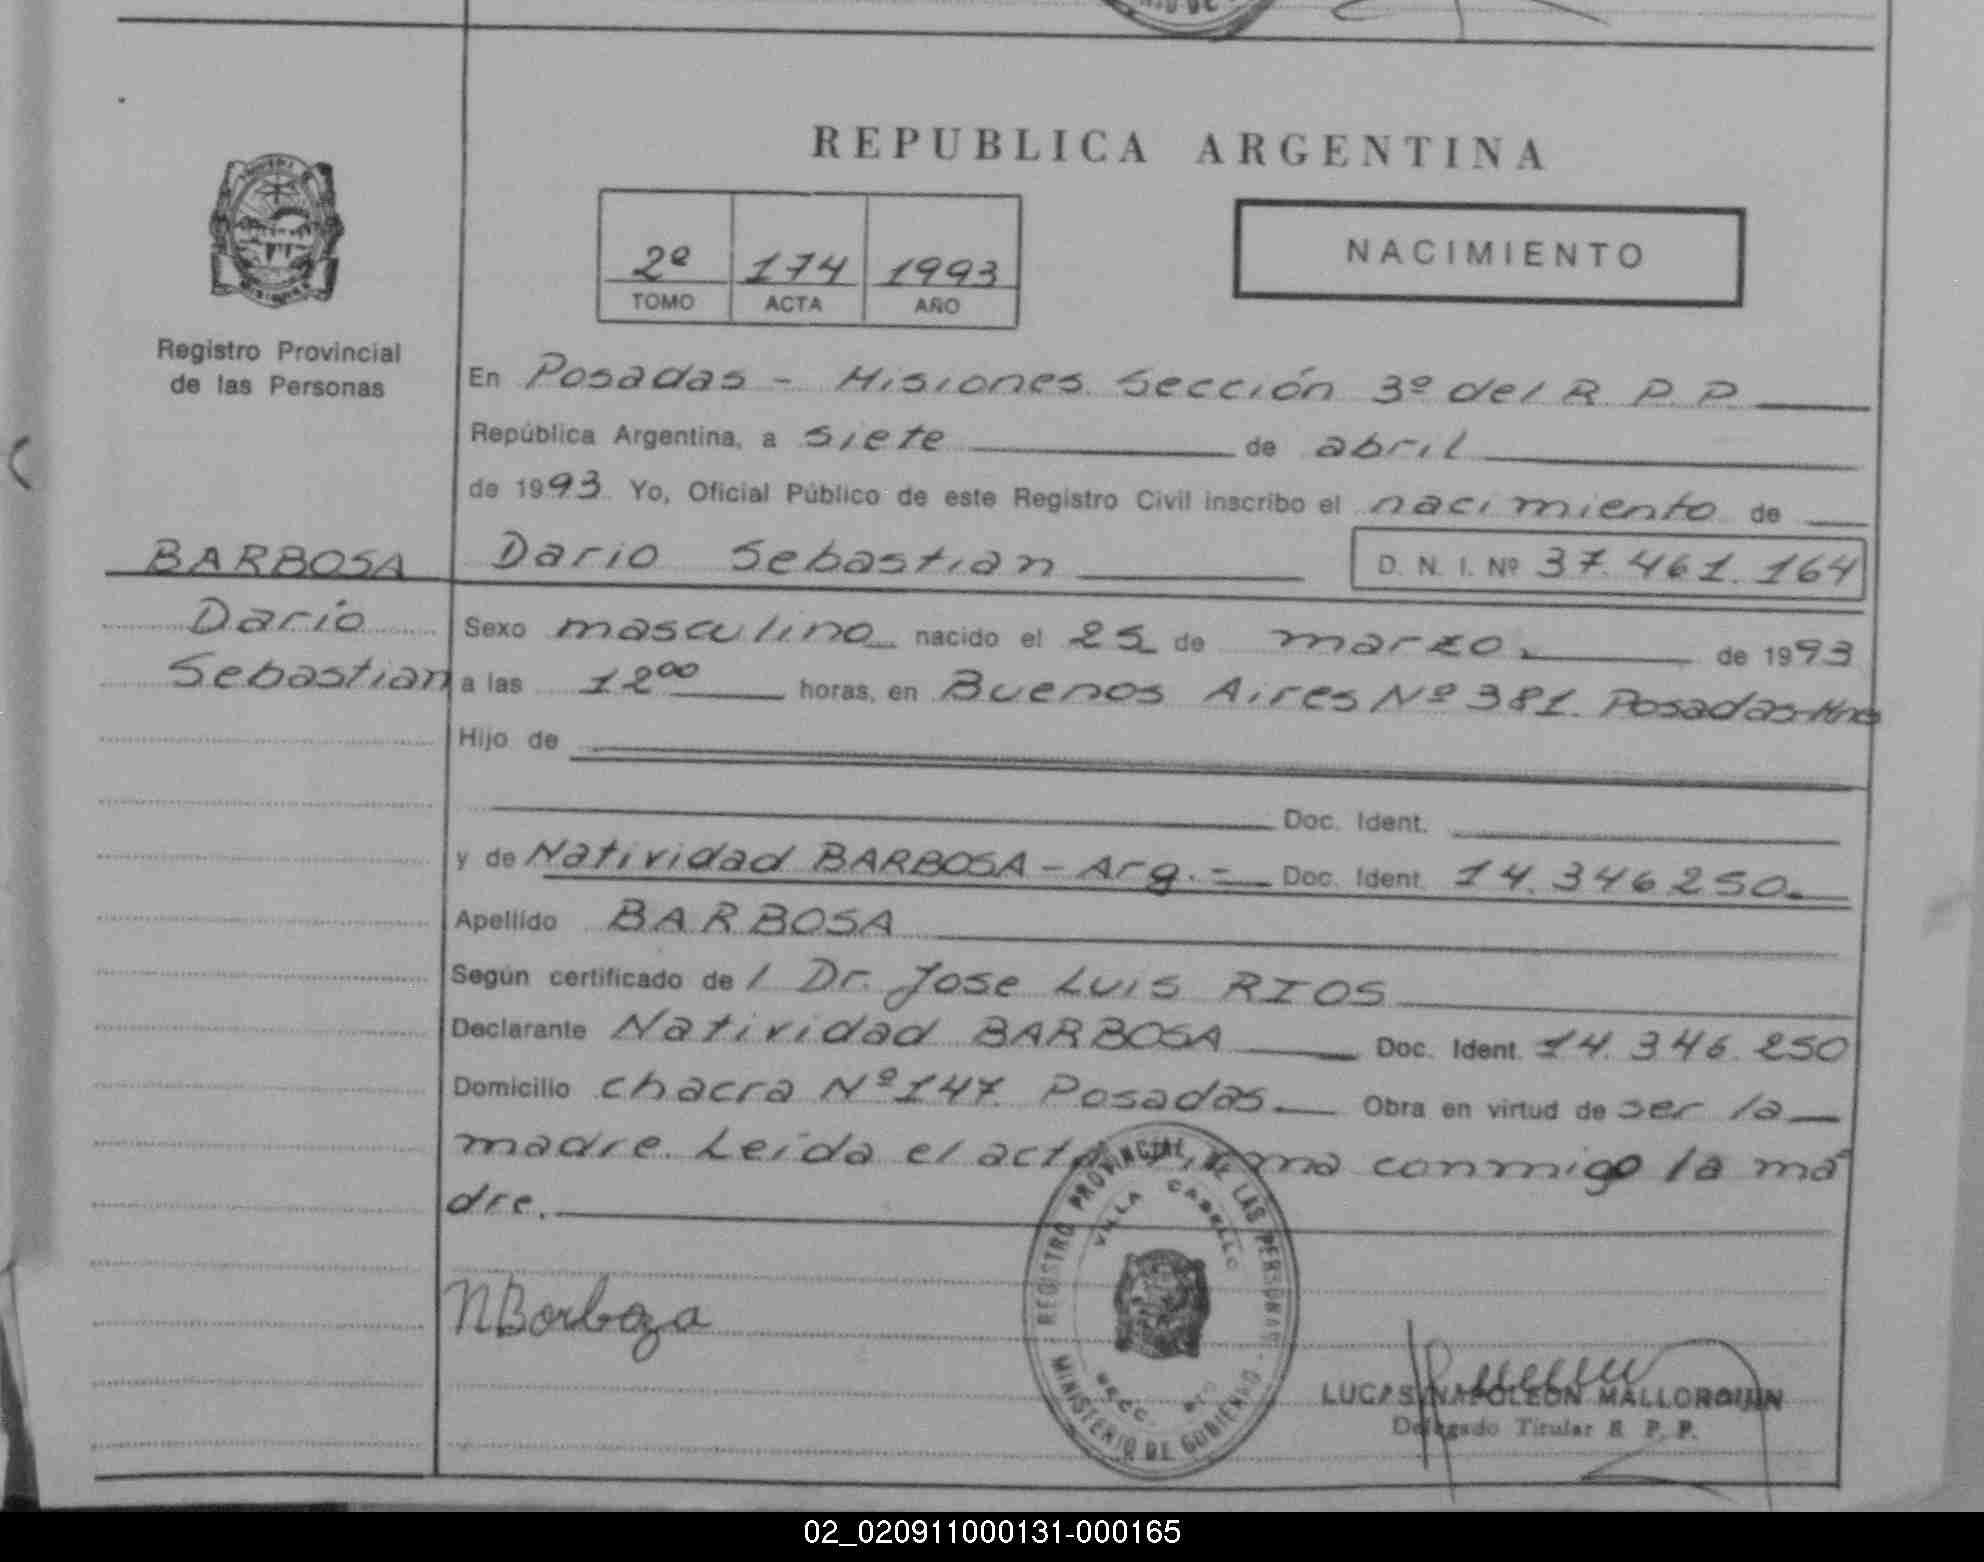 REPUBLICA ARGENTINA
2º 174 1993
TOMO ACTA AÑO
NACIMIENTO
Registro Provincial
de las Personas
En Posadas - Misiones. Sección 3º del R. P. P.
República Argentina, a siete de abril
de 1993. Yo, Oficial Público de este Registro Civil inscribo el nacimiento de
BARBOSA
Dario Sebastian D. N. I. Nº 37.461.164
Dario
Sebastian
Sexo masculino nacido el 25 de marzo. de 1993
a las 12⁰⁰ horas, en Buenos Aires Nº 381. Posadas-Mnes
Hijo de
Doc. Ident.
y de Natividad BARBOSA - Arg. - Doc. Ident. 14.346250.
Apellido BARBOSA
Según certificado de l Dr. Jose Luis RIOS
Declarante Natividad BARBOSA Doc. Ident. 14.346.250
Domicilio chacra Nº 147. Posadas. Obra en virtud de ser la
madre. Leída el acta firma conmigo la ma
dre.
REGISTRO PROVINCIAL DE LAS PERSONAS
VILLA CABELLO
SECC.
MINISTERIO DE GOBIERNO
NBarboza
LUCAS NAPOLEON MALLORQUIN
Delegado Titular R. P. P.
02_020911000131-000165